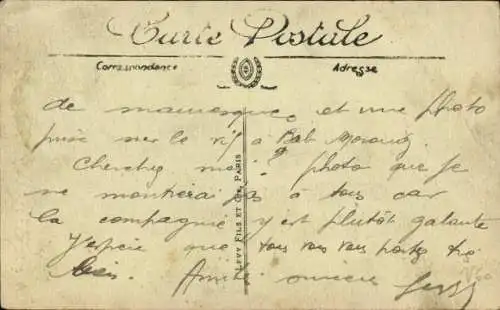 Carte Postale
Correspondance
Adresse
de et une photo
prise sur le vif à Bab
Cherchez moi photo que je
ne montrerai pas à tous car
la compagnie y est plutôt galante
J'espère que vous vous portez très
bien. Amitiés
LEVY FILS ET Cie, PARIS